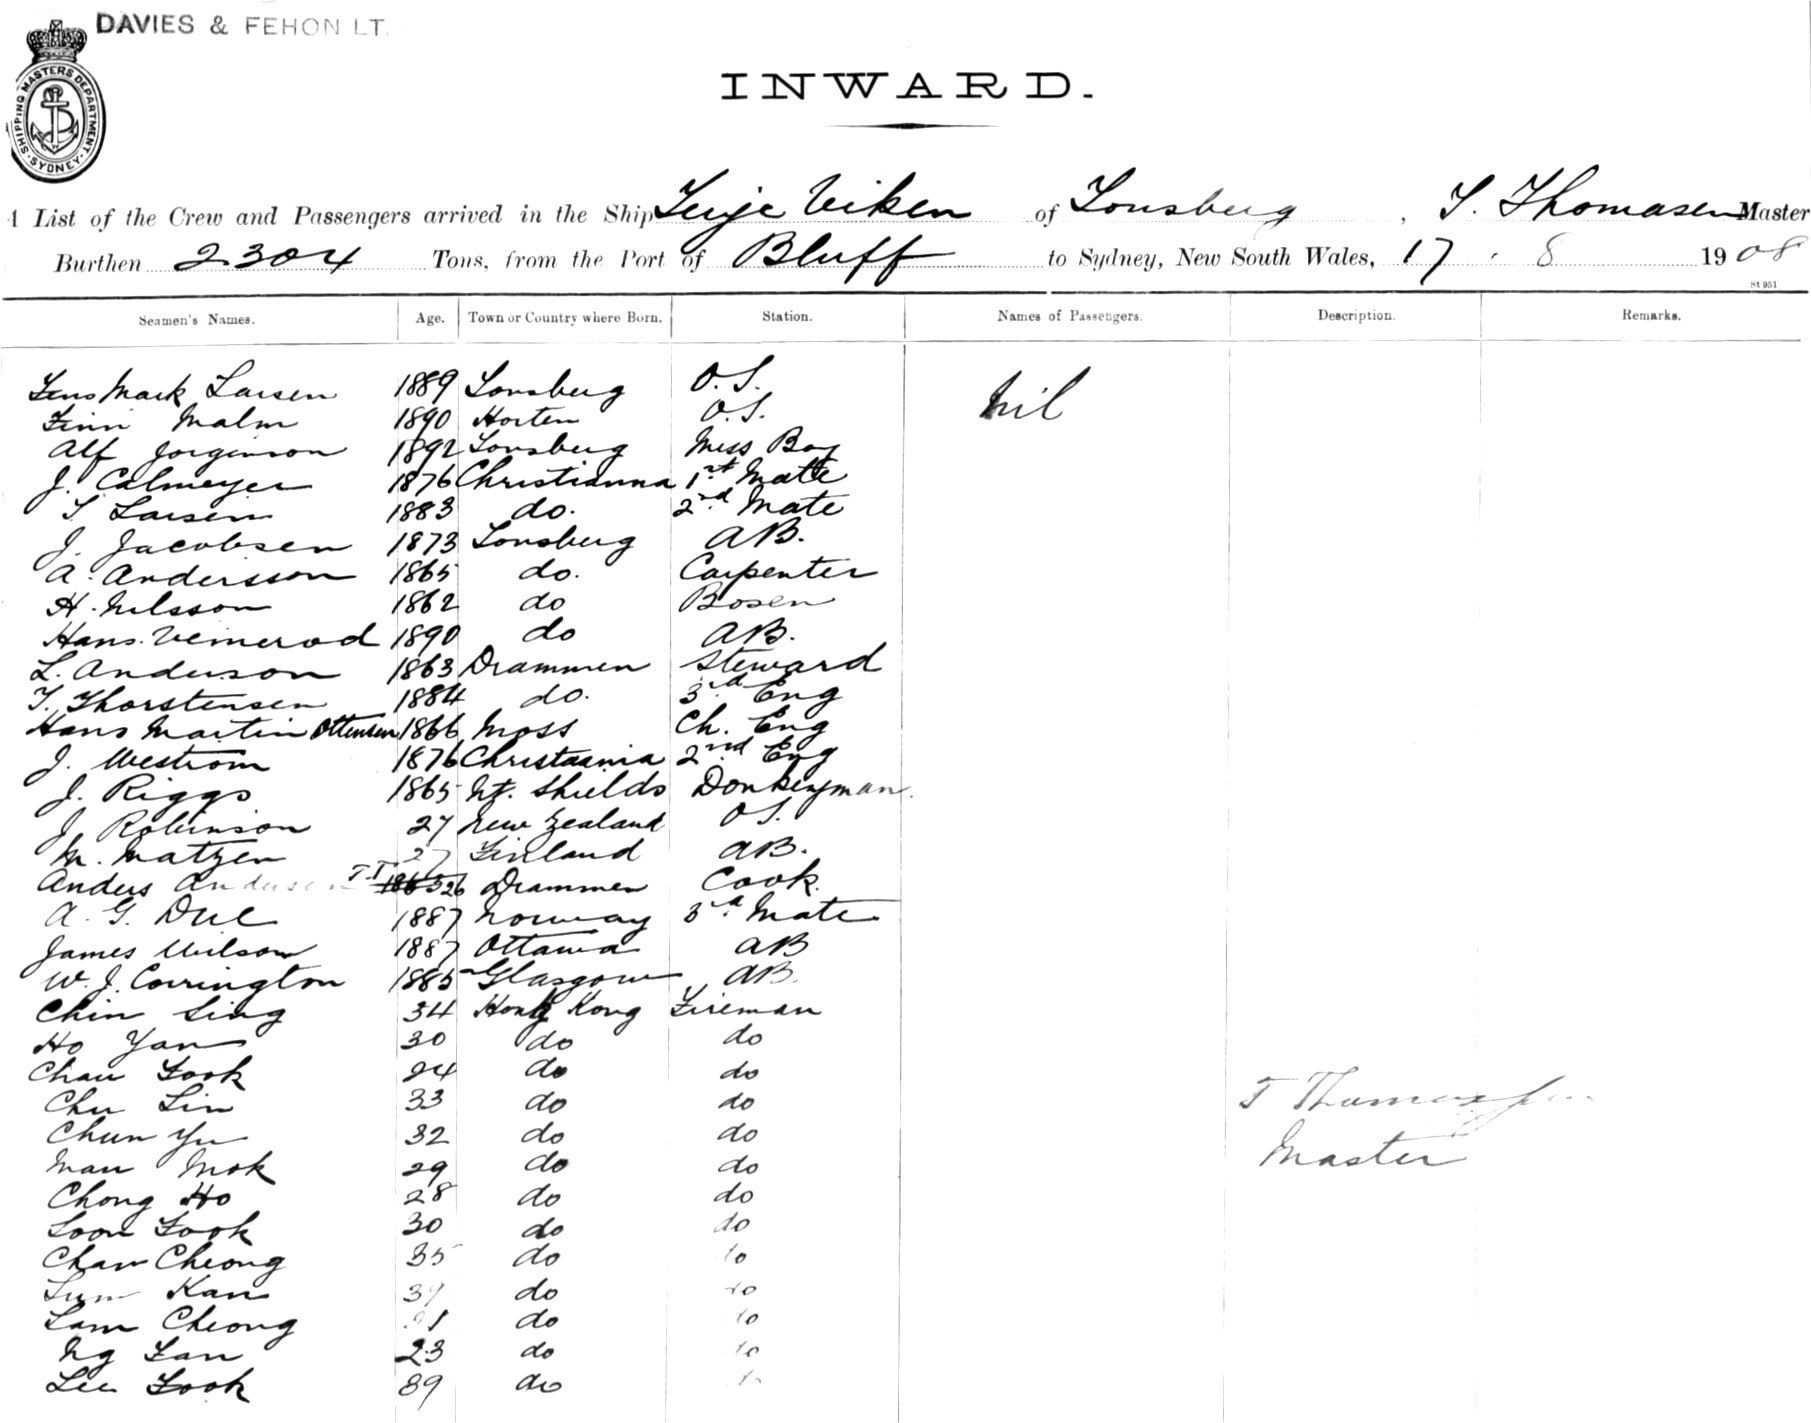 DAVIES & FEHON LT.
SHIPPING MASTERS DEPARTMENT. SYDNEY
INWARD.
A List of the Crew and Passengers arrived in the Ship Terje Viken of Tonsberg, T. Thomasen Master
Burthen 2304 Tons, from the Port of Bluff to Sydney, New South Wales, 17 . 8 1908
St 951
Seamen's Names. Age. Town or Country where Born. Station. Names of Passengers. Description. Remarks.
Jens Mark Larsen 1889 Tonsberg O.S. Nil
Finn Malm 1890 Horten O.S.
Alf Jorginson 1892 Tonsberg Mess Boy
J. Calmeyer 1876 Christianna 1st Mate
T Larsen 1883 do. 2nd Mate
J. Jacobsen 1873 Tonsberg AB.
A. Andersson 1865 do. Carpenter
H. Nilsson 1862 do Bosen
Hans Veinerod 1890 do AB.
L. Anderson 1863 Drammen Steward
T. Thorstensen 1884 do. 3rd Eng
Hans Martin Ottensen 1866 Moss Ch. Eng
J. Westrom 1876 Christaania 2nd Eng
J. Riggs 1865 Nt. Shields Donkeyman.
J. Robinson 27 New Zealand O S.
M. Matzen 27 Finland AB.
Anders Andersen T.T. 26 Drammen Cook.
A. G. Due 1887 Norway 3rd Mate
James Wilson 1887 Ottawa AB
W. J. Corrington 1885 Glasgow AB.
Chin Sing 34 Hong Kong Fireman
Ho Yan 30 do do
Chau Fook 24 do do
Chu Lin 33 do do
Chun Yu 32 do do
Man Mok 29 do do
Chong Ho 28 do do
Soon Fook 30 do do
Chan Cheong 35 do do
Kan do do
Lam Cheong do do
Ng Fan 23 do do
Lee Fook 39 do
T Thomassen
Master